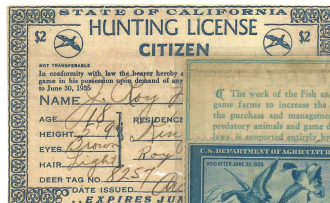 STATE OF CALIFORNIA
$2 HUNTING LICENSE $2
CITIZEN
NOT TRANSFERABLE
In conformity with law the bearer hereby
game in his possession upon demand of any
to June 30, 1935
NAME J. Roy
AGE 48 RESIDENCE
HEIGHT 5-9
EYES Brown
HAIR Light Roy
DEER TAG NO 8257
DATE ISSUED
EXPIRES JU
¶ The work of the Fish an
game farms to increase the
the purchase and manageme
predatory animals and game
laws, is supported entirely by
U.S. DEPARTMENT OF AGRICULTU
VOID AFTER JUNE 30, 1935